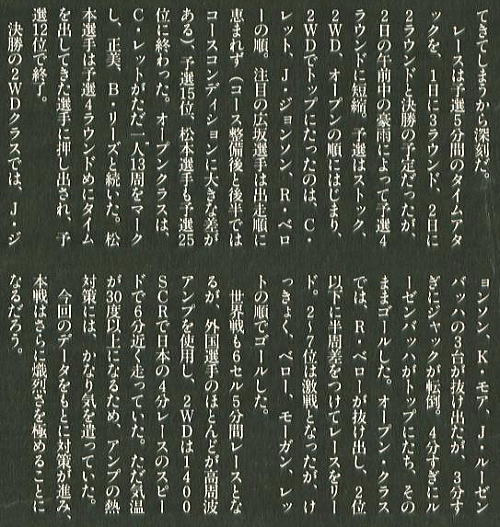 てきてしまうから深刻だ。
　レースは予選5分間のタイムアタ
ックを、1日に3ラウンド、2日に
2ラウンドと決勝の予定だったが、
2日の午前中の豪雨によって予選4
ラウンドに短縮。予選はストック、
2WD、オープンの順にはじまり、
2WDでトップにたったのは、C・
レット、J・ジョンソン、R・ベロ
ーの順。注目の広坂選手は出走順に
恵まれず（コース整備後と後半では
コースコンディションに大きな差が
ある）、予選15位、松本選手も予選25
位に終わった。オープンクラスは、
C・レットがただ一人13周をマーク
し、正美、B・リーズと続いた。松
本選手は予選4ラウンドめにタイム
を出してきた選手に押し出され、予
選12位で終了。
　決勝の2WDクラスでは、J・ジ
ョンソン、K・モア、J・ルーゼン
バッハの3台が抜け出たが、3分す
ぎにジャックが転倒。4分すぎにル
ーゼンバッハがトップにたち、その
ままゴールした。オープン・クラス
では、R・ベローが抜け出し、2位
以下に半周差をつけてレースをリー
ド。2〜7位は激戦となったが、け
っきょく、ベロー、モーガン、レッ
トの順でゴールした。
　世界戦も6セル5分間レースとな
るが、外国選手のほとんどが高周波
アンプを使用し、2WDは1400
SCRで日本の4分レースのスピー
ドで6分近く走っていた。ただ気温
が30度以上になるため、アンプの熱
対策には、かなり気を遣っていた。
　今回のデータをもとに対策が進み、
本戦はさらに熾烈さを極めることに
なるだろう。